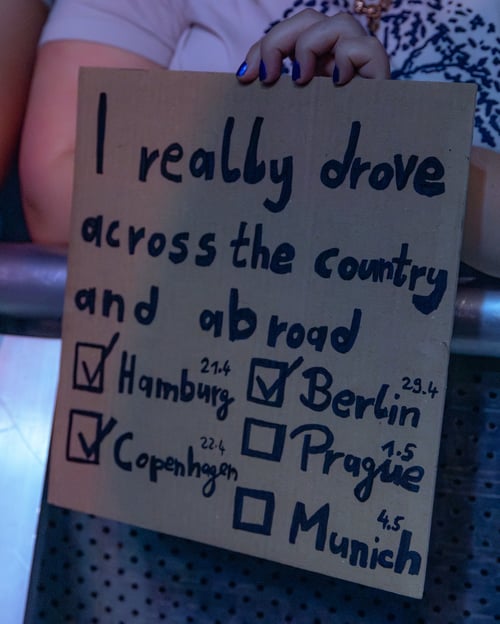 I really drove
across the country
and abroad
☑ Hamburg 21.4
☑ Berlin 29.4
☑ Copenhagen 22.4
☐ Prague 1.5
☐ Munich 4.5